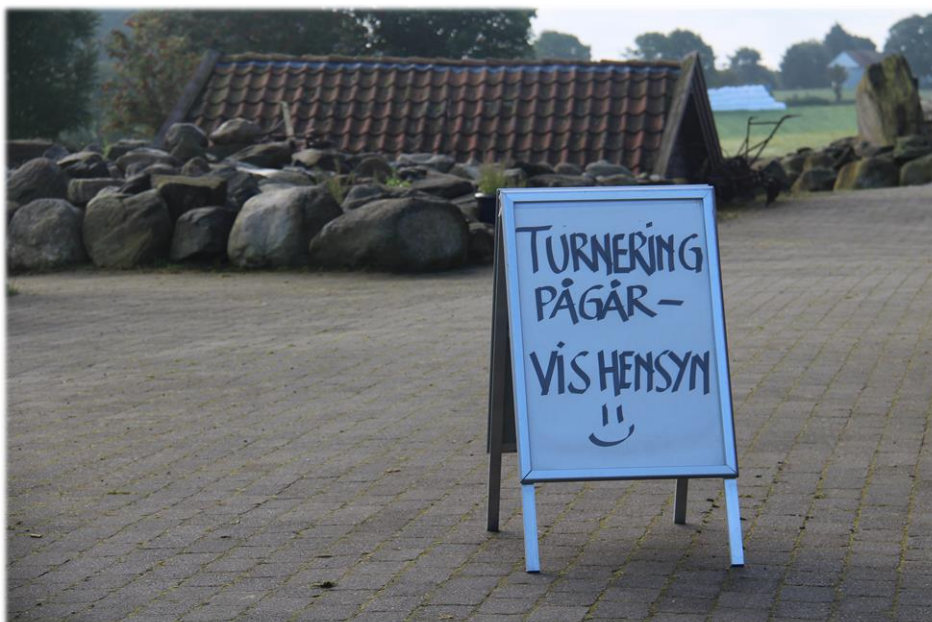 TURNERING
PÅGÅR –
VIS HENSYN